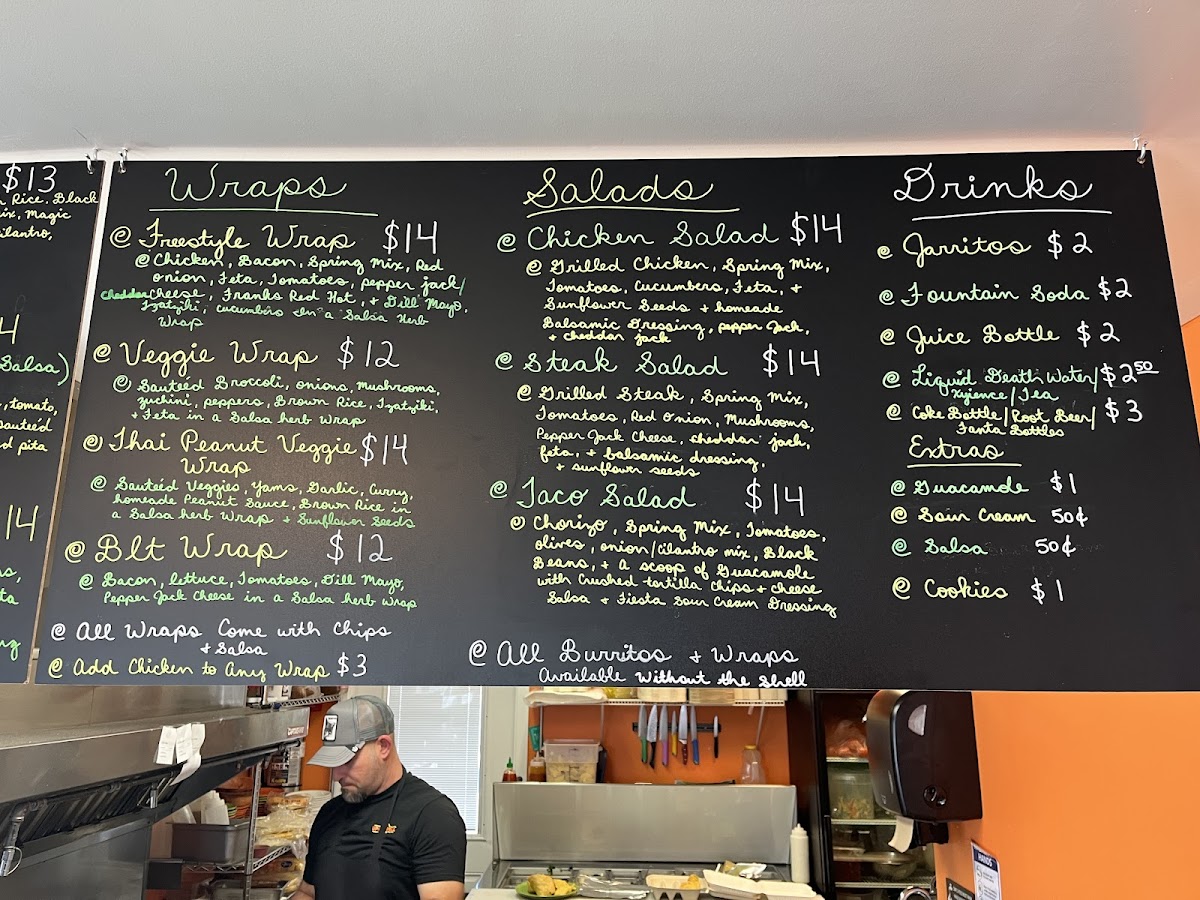 $13
Rice, Black
ix, Magic
ilantro,
4
Salsa)
, tomato,
sauteéd
d pita
14
Wraps
@ Freestyle Wrap $14
@ Chicken, Bacon, Spring Mix, Red
onion, Feta, Tomatoes, pepper jack/
cheddar cheese, Franks Red Hot, + Dill Mayo,
Tzatziki, cucumbers In a Salsa Herb
Wrap
@ Veggie Wrap $12
@ Sauteéd Broccoli, onions, Mushrooms,
zuchini, peppers, Brown Rice, Tzatziki,
+ Feta in a Salsa herb Wrap
@ Thai Peanut Veggie $14
Wrap
@ Sauteéd Veggies, Yams, Garlic, Curry,
homeade Peanut Sauce, Brown Rice in
a Salsa herb Wrap + Sunflower Seeds
@ Blt Wrap $12
@ Bacon, lettuce, Tomatoes, Dill Mayo,
Pepper Jack Cheese in a Salsa herb Wrap
@ All Wraps Come with Chips
+ Salsa
@ Add Chicken to Any Wrap $3
Salads
@ Chicken Salad $14
@ Grilled Chicken, Spring Mix,
Tomatoes, Cucumbers, Feta, +
Sunflower Seeds + homeade
Balsamic Dressing, pepper Jack,
+ cheddar jack
@ Steak Salad $14
@ Grilled Steak, Spring Mix,
Tomatoes, Red Onion, Mushrooms,
Pepper Jack Cheese, cheddar jack,
feta, + balsamic dressing,
+ sunflower seeds
@ Taco Salad $14
@ Chorizo, Spring Mix, Tomatoes,
olives, onion/cilantro mix, Black
Beans, + a scoop of Guacamole
with Crushed tortilla Chips + cheese
Salsa + Fiesta Sour Cream Dressing
@ All Burritos + Wraps
Available Without the shell
Drinks
@ Jarritos $2
@ Fountain Soda $2
@ Juice Bottle $2
@ Liquid Death Water/ $2 50
Xyience/Tea
@ Coke Bottle/Root Beer/ $3
Fanta Bottles
Extras
@ Guacamole $1
@ Sour Cream 50¢
@ Salsa 50¢
@ Cookies $1